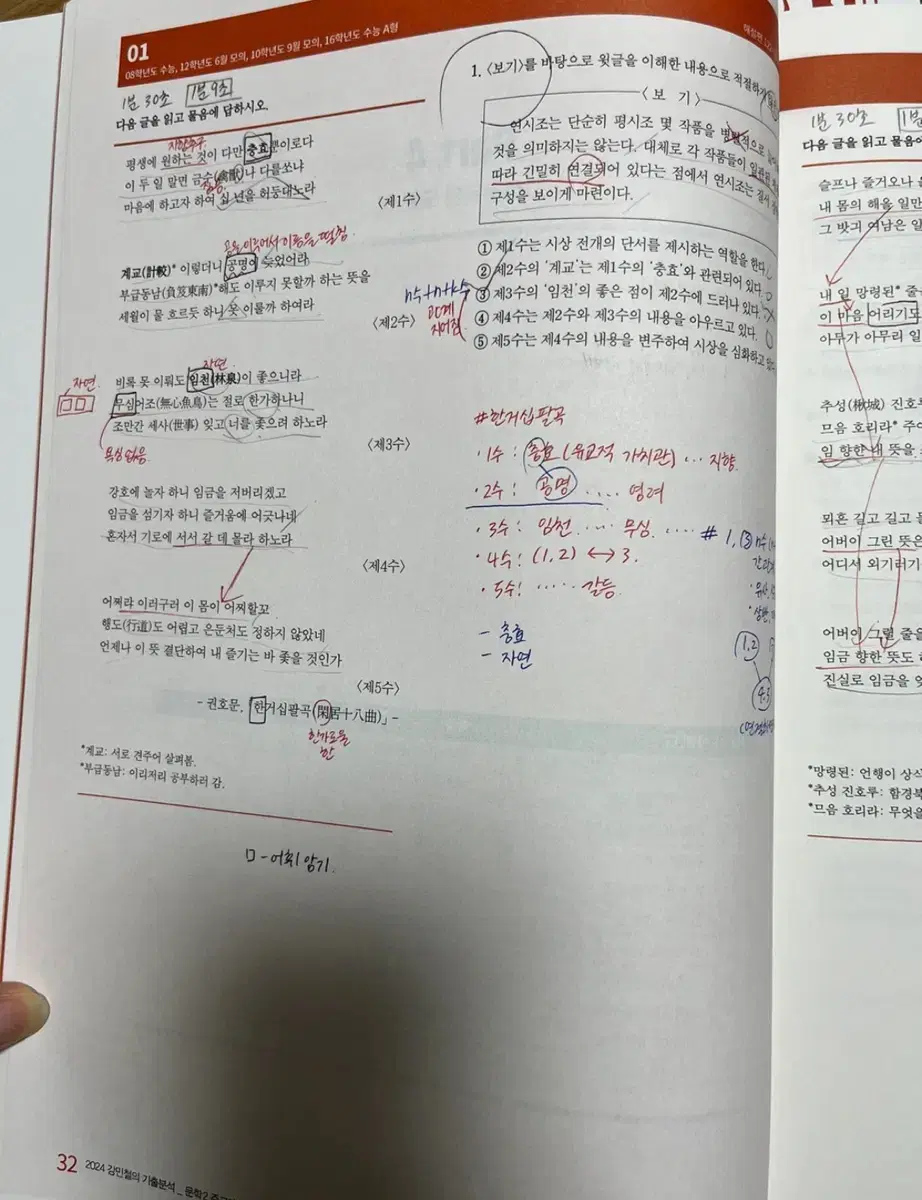 01
08학년도 수능, 12학년도 6월 모의, 10학년도 9월 모의, 16학년도 수능 A형
1분 30초 1분 9초
다음 글을 읽고 물음에 답하시오.
지향추구
평생에 원하는 것이 다만 충효뿐이로다
이 두 일 말면 금수(禽獸)나 다를쏘냐
마음에 하고자 하여 십 년을 허둥대노라
〈제1수〉
공을 이루어서 이름을 떨침
계교(計較)* 이렇더니 공명이 늦었어라
부급동남(負笈東南)*해도 이루지 못할까 하는 뜻을
세월이 물 흐르듯 하니 못 이룰까 하여라
〈제2수〉
자연
자연
비록 못 이뤄도 임천(林泉)이 좋으니라
무심어조(無心魚鳥)는 절로 한가하나니
조만간 세사(世事) 잊고 너를 좇으려 하노라
욕심 없음
〈제3수〉
강호에 놀자 하니 임금을 저버리겠고
임금을 섬기자 하니 즐거움에 어긋나네
혼자서 기로에 서서 갈 데 몰라 하노라
〈제4수〉
어쩌랴 이러구러 이 몸이 어찌할꼬
행도(行道)도 어렵고 은둔처도 정하지 않았네
언제나 이 뜻 결단하여 내 즐기는 바 좇을 것인가
〈제5수〉
- 권호문, 「한거십팔곡(閑居十八曲)」 -
한가로울
한
*계교: 서로 견주어 살펴봄.
*부급동남: 이리저리 공부하러 감.
□ - 어휘 암기.
1. 〈보기〉를 바탕으로 윗글을 이해한 내용으로 적절하지
〈 보 기 〉
연시조는 단순히 평시조 몇 작품을 병렬적으로
것을 의미하지는 않는다. 대체로 각 작품들이 일관된
따라 긴밀히 연결되어 있다는 점에서 연시조는 질서
구성을 보이게 마련이다.
① 제1수는 시상 전개의 단서를 제시하는 역할을 한다.
② 제2수의 '계교'는 제1수의 '충효'와 관련되어 있다. O
③ 제3수의 '임천'의 좋은 점이 제2수에 드러나 있다. X
④ 제4수는 제2수와 제3수의 내용을 아우르고 있다. O
⑤ 제5수는 제4수의 내용을 변주하여 시상을 심화하고
관계
#한거십팔곡
· 1수 : 충효 (유교적 가치관) … 지향.
· 2수 : 공명 …. 염려
· 3수 : 임천 …. 무심. ….
· 4수 : (1, 2) ↔ 3.
· 5수 : ….. 갈등.
- 충효
- 자연
32 2024 김민철의 기출분석 _ 문학2
1분 30초
다음 글을 읽고 물음에
슬프나 즐거오나
내 몸의 해올 일만
그 밧긔 여남은 일
내 일 망령된*
이 마음 어리기도
아무가 아무리 일
추성(楸城) 진호루
므음 호리라*
임 향한 내 뜻을
뫼흔 길고 길고
어버이 그린 뜻은
어디서 외기러기
어버이 그릴 줄을
임금 향한 뜻도
진실로 임금을
*망령된: 언행이
*추성 진호루: 함경북
*므음 호리라: 무엇을